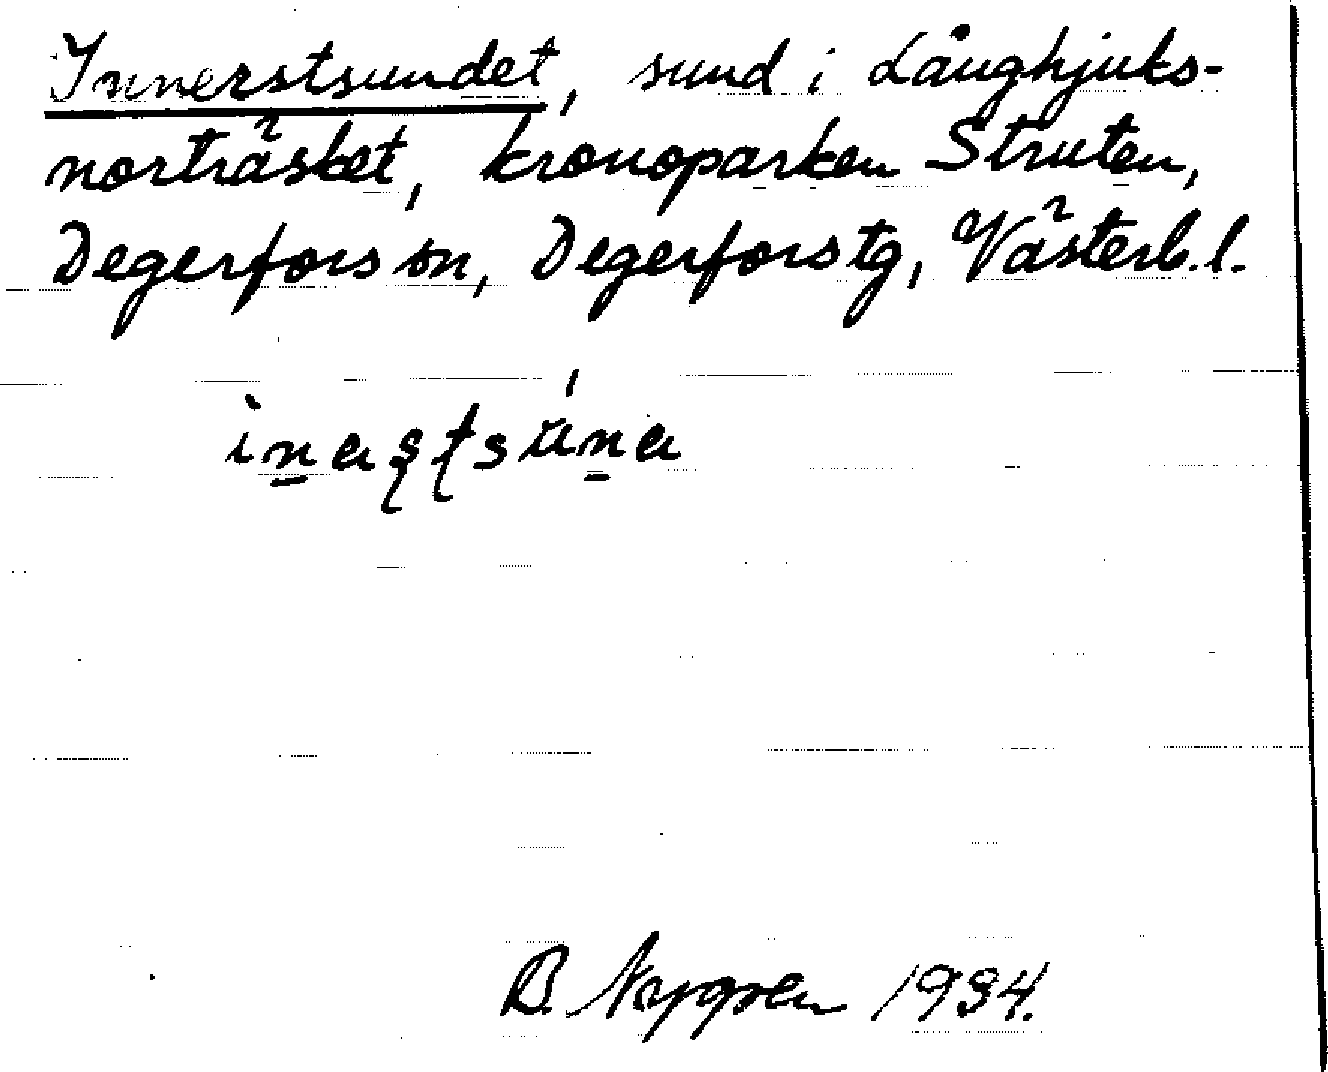 Innerstsundet, sund i Långhjuks-
norträsket, kronoparken Struten,
Degerfors sn, Degerfors tg, Västerb. l.
B. Nygren 1934.